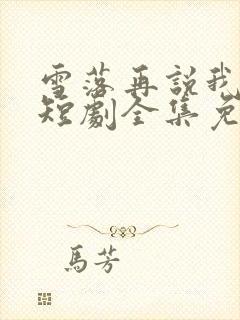 雪落再説我
短劇全集免
馬芳